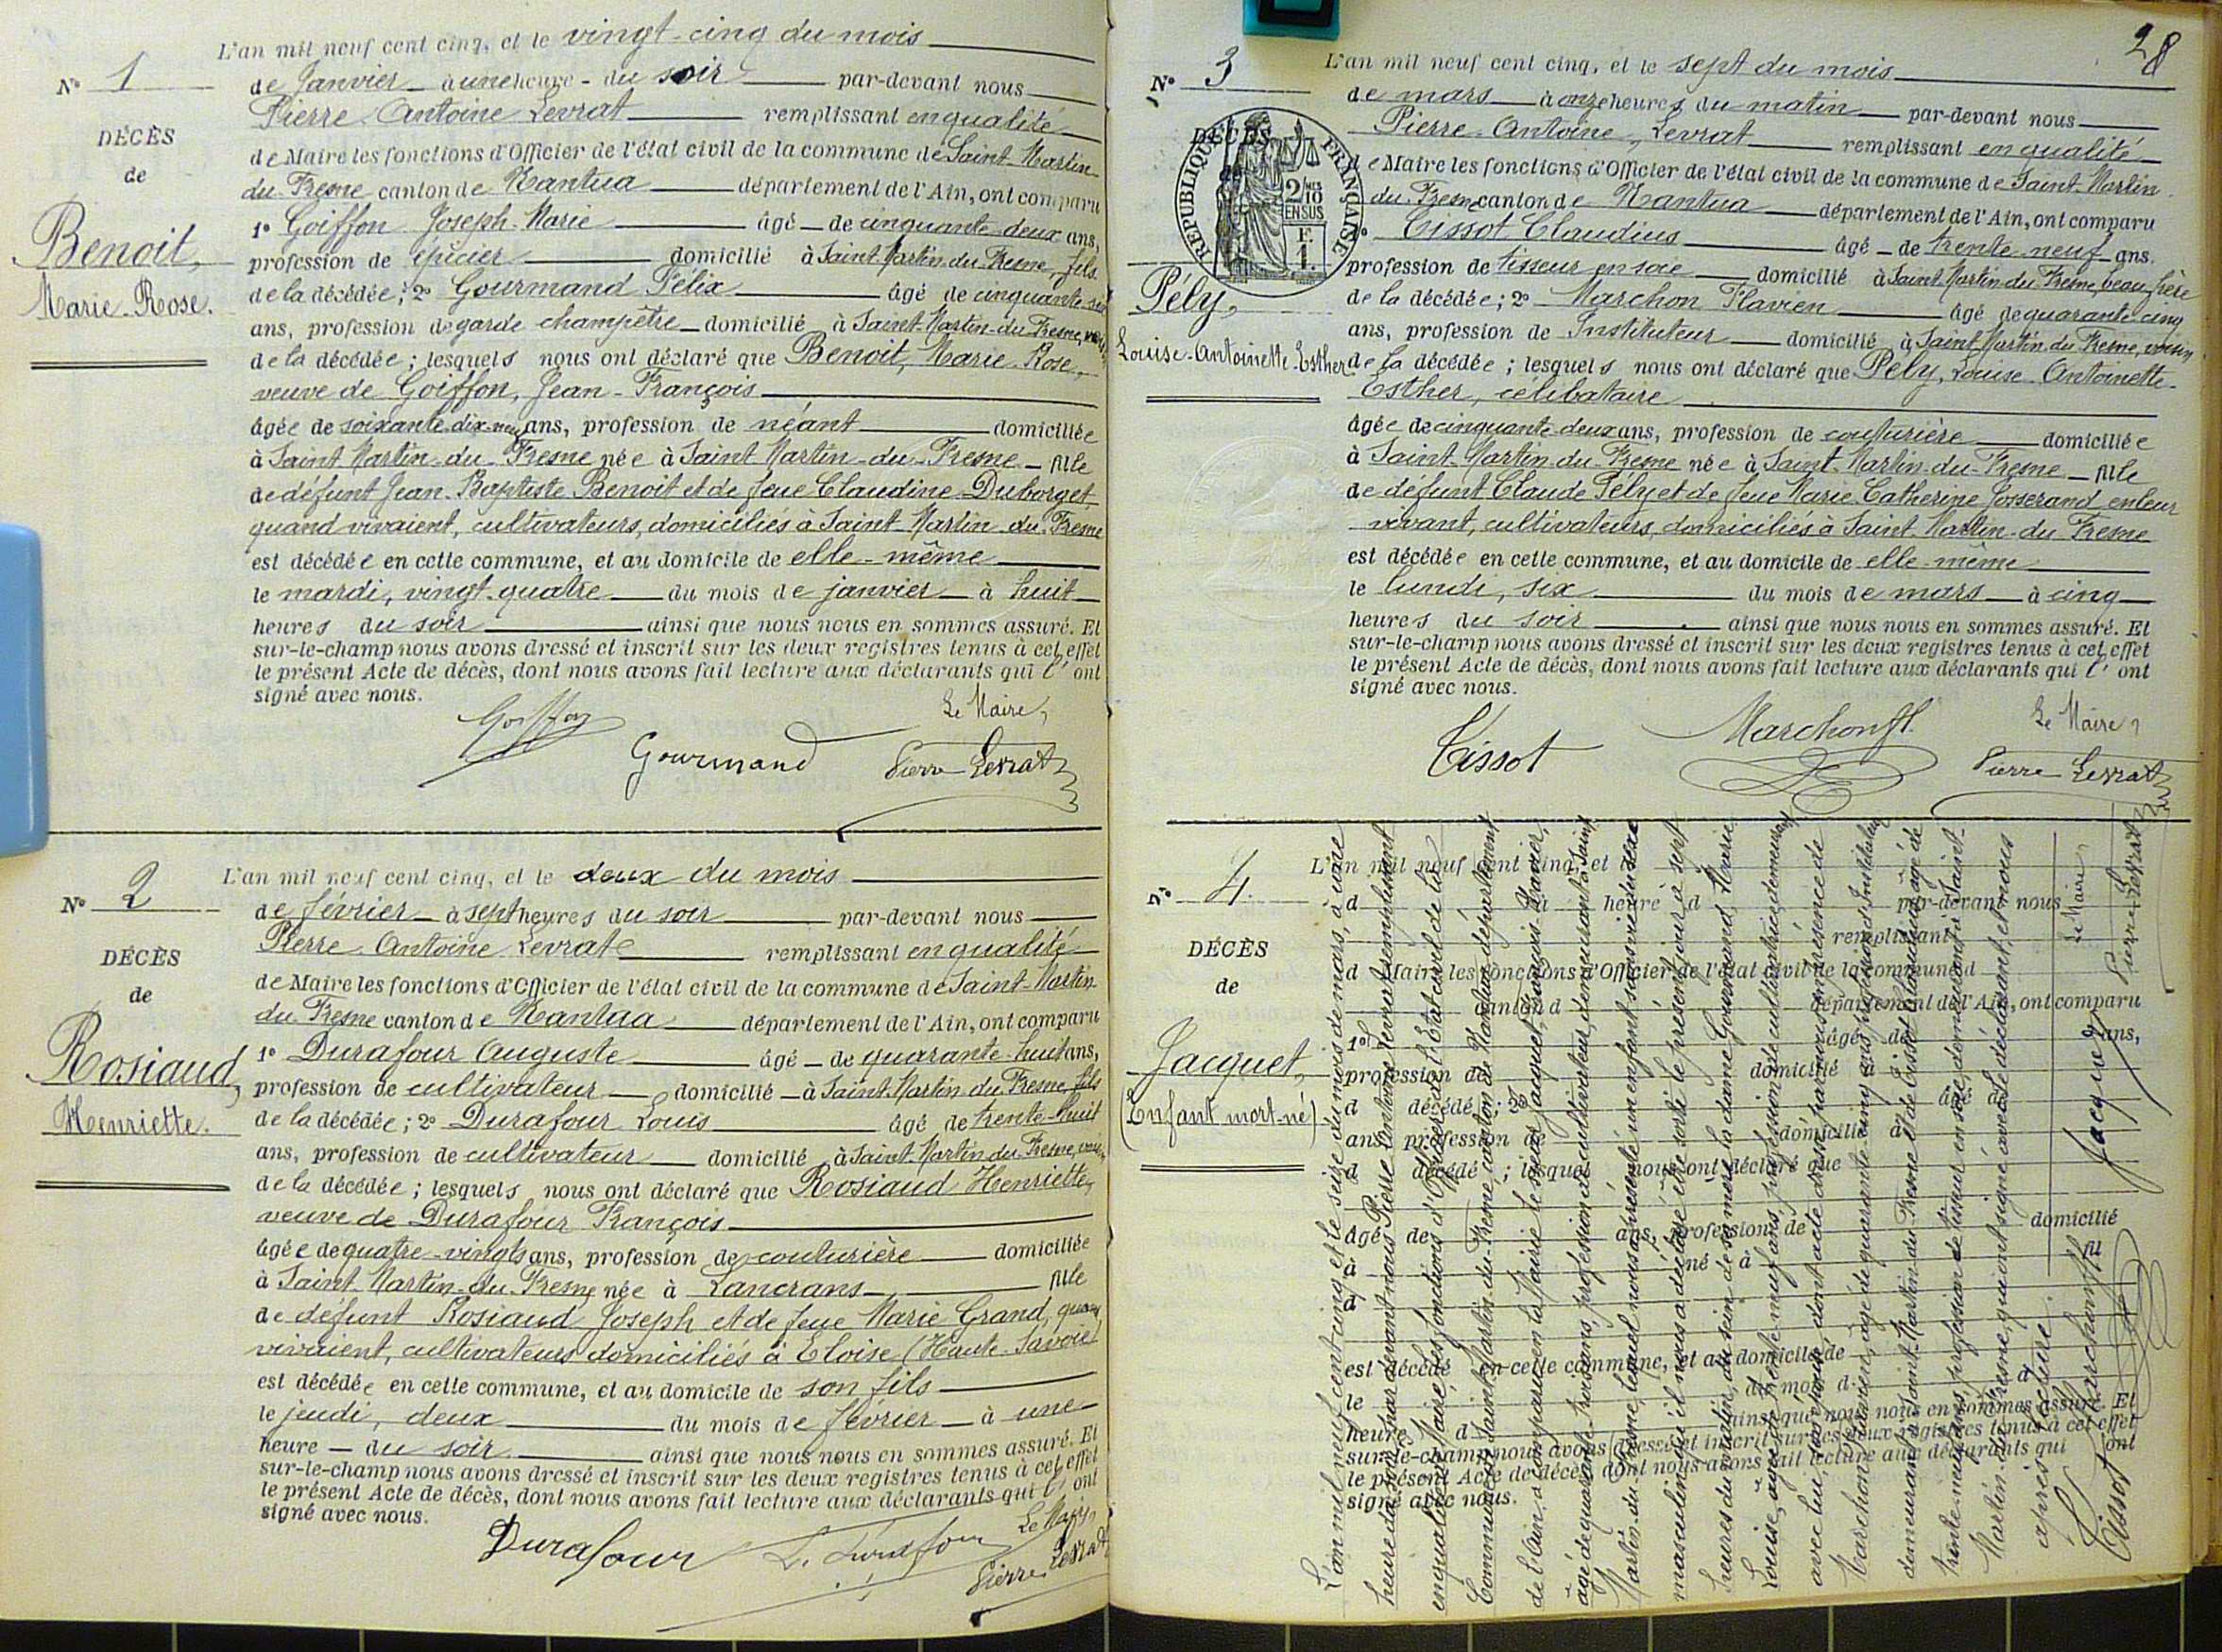 L'an mil neuf cent cinq, et le vingt-cinq du mois
N° 1
de Janvier à une heure du soir par-devant nous
Pierre Antoine Levrat remplissant en qualité
DÉCÈS
de Maire les fonctions d'Officier de l'état civil de la commune de Saint-Martin
de
du-Fresne canton de Nantua département de l'Ain, ont comparu
1° Goiffon Joseph-Marie âgé de cinquante-deux ans,
Benoit,
profession de épicier domicilié à Saint Martin-du-Fresne, fils
Marie-Rose.
de la décédée; 2° Gourmand Félix âgé de cinquante
ans, profession de garde champêtre domicilié à Saint-Martin-du-Fresne,
de la décédée; lesquels nous ont déclaré que Benoit, Marie-Rose,
veuve de Goiffon, Jean-François
âgée de soixante-dix-neuf ans, profession de néant domiciliée
à Saint-Martin-du-Fresne née à Saint Martin-du-Fresne fille
de défunt Jean-Baptiste Benoit et de feue Claudine Duborget,
quand vivaient, cultivateurs, domiciliés à Saint-Martin-du-Fresne
est décédée en cette commune, et au domicile de elle-même
le mardi, vingt-quatre du mois de janvier à huit
heures du soir ainsi que nous nous en sommes assuré. Et
sur-le-champ nous avons dressé et inscrit sur les deux registres tenus à cet effet
le présent Acte de décès, dont nous avons fait lecture aux déclarants qui l'ont
signé avec nous.
Le Maire,
Goiffon
Gourmand
Pierre Levrat
L'an mil neuf cent cinq, et le deux du mois
N° 2
de février à sept heures du soir par-devant nous
Pierre Antoine Levrat remplissant en qualité
DÉCÈS
de Maire les fonctions d'Officier de l'état civil de la commune de Saint-Martin
de
du-Fresne canton de Nantua département de l'Ain, ont comparu
1° Durafour Auguste âgé de quarante-huit ans,
Rosiaud,
profession de cultivateur domicilié à Saint-Martin-du-Fresne, fils
Henriette.
de la décédée; 2° Durafour Louis âgé de trente-huit
ans, profession de cultivateur domicilié à Saint-Martin-du-Fresne,
de la décédée; lesquels nous ont déclaré que Rosiaud Henriette,
veuve de Durafour François
âgée de quatre-vingts ans, profession de couturière domiciliée
à Saint-Martin-du-Fresne née à Lancrans fille
de défunt Rosiaud Joseph et de feue Marie Grand, quand
vivaient, cultivateurs domiciliés à Eloise (Haute-Savoie)
est décédée en cette commune, et au domicile de son fils
le jeudi, deux du mois de février à une
heure du soir ainsi que nous nous en sommes assuré. Et
sur-le-champ nous avons dressé et inscrit sur les deux registres tenus à cet effet
le présent Acte de décès, dont nous avons fait lecture aux déclarants qui l'ont
signé avec nous.
Le Maire
Durafour
L. Durafour
Pierre Levrat
28
L'an mil neuf cent cinq, et le sept du mois
N° 3
de mars à onze heures du matin par-devant nous
Pierre-Antoine, Levrat remplissant en qualité
DÉCÈS
RÉPUBLIQUE FRANÇAISE
2/10 EN SUS
F. 1.
de Maire les fonctions d'Officier de l'état civil de la commune de Saint-Martin
du-Fresne canton de Nantua département de l'Ain, ont comparu
1° Tissot Claudius âgé de trente-neuf ans,
profession de tisseur en soie domicilié à Saint-Martin-du-Fresne, beau-frère
Pély,
de la décédée; 2° Marchon Flavien âgé de quarante-cinq
ans, profession de Instituteur domicilié à Saint Martin-du-Fresne, voisin
Louise-Antoinette-Esther
de la décédée; lesquels nous ont déclaré que Pély, Louise-Antoinette-
Esther, célibataire
âgée de cinquante-deux ans, profession de couturière domiciliée
à Saint-Martin-du-Fresne née à Saint-Martin-du-Fresne fille
de défunt Claude Pély et de feue Marie-Catherine Josserand, en leur
vivant, cultivateurs, domiciliés à Saint-Martin-du-Fresne
est décédée en cette commune, et au domicile de elle-même
le lundi, six du mois de mars à cinq
heures du soir ainsi que nous nous en sommes assuré. Et
sur-le-champ nous avons dressé et inscrit sur les deux registres tenus à cet effet
le présent Acte de décès, dont nous avons fait lecture aux déclarants qui l'ont
signé avec nous.
Le Maire,
Tissot
Marchon fl.
Pierre Levrat
N° 4.
DÉCÈS
de
Jacquet,
(Enfant mort-né)
L'an mil neuf cent cinq, et le
d à heure d par-devant nous
remplissant
d Maire les fonctions d'Officier de l'état civil de la commune d
canton d département de l'Ain, ont comparu
1° âgé de ans,
profession de domicilié à
d décédé; 2° âgé de
ans, profession de domicilié à
d décédé; lesquel nous ont déclaré que
âgé de ans, profession de domicilié
à né à fil
d
est décédé en cette commune, et au domicile de
le du mois d à
heure d ainsi que nous nous en sommes assuré. Et
sur-le-champ nous avons dressé et inscrit sur les deux registres tenus à cet effet
le présent Acte de décès, dont nous avons fait lecture aux déclarants qui ont
signé avec nous.
L'an mil neuf cent cinq et le seize du mois de mars, à une
heure du soir par devant nous Pierre Antoine Levrat remplissant
en qualité de Maire, les fonctions d'Officier de l'état civil de la
Commune de Saint-Martin-du-Fresne, canton de Nantua, département
de l'Ain, a comparu en la Mairie le sieur Jacquet, François Xavier,
âgé de quarante-trois ans, profession de cultivateur, demeurant à Saint
Martin-du-Fresne, lequel nous a présenté un enfant sans vie du sexe
masculin, et il nous a déclaré être sorti le présent jour à sept
heures du matin, du sein de sa mère la dame Gourmand, Marie
Louise, âgée de trente neuf ans, profession de cultivatrice, demeurant
avec lui, dont acte dressé par nous en présence de
Marchon Flavien, âgé de quarante cinq ans, profession d'Instituteur,
demeurant à Saint-Martin-du-Fresne et de Tissot Claudius, âgé de
trente-neuf ans, profession de tisseur en soie, demeurant à Saint-
Martin-du-Fresne, qui ont signé avec le déclarant, et nous
après lecture.
Le Maire,
Pierre Levrat
Jacquet
Marchon fl
Tissot